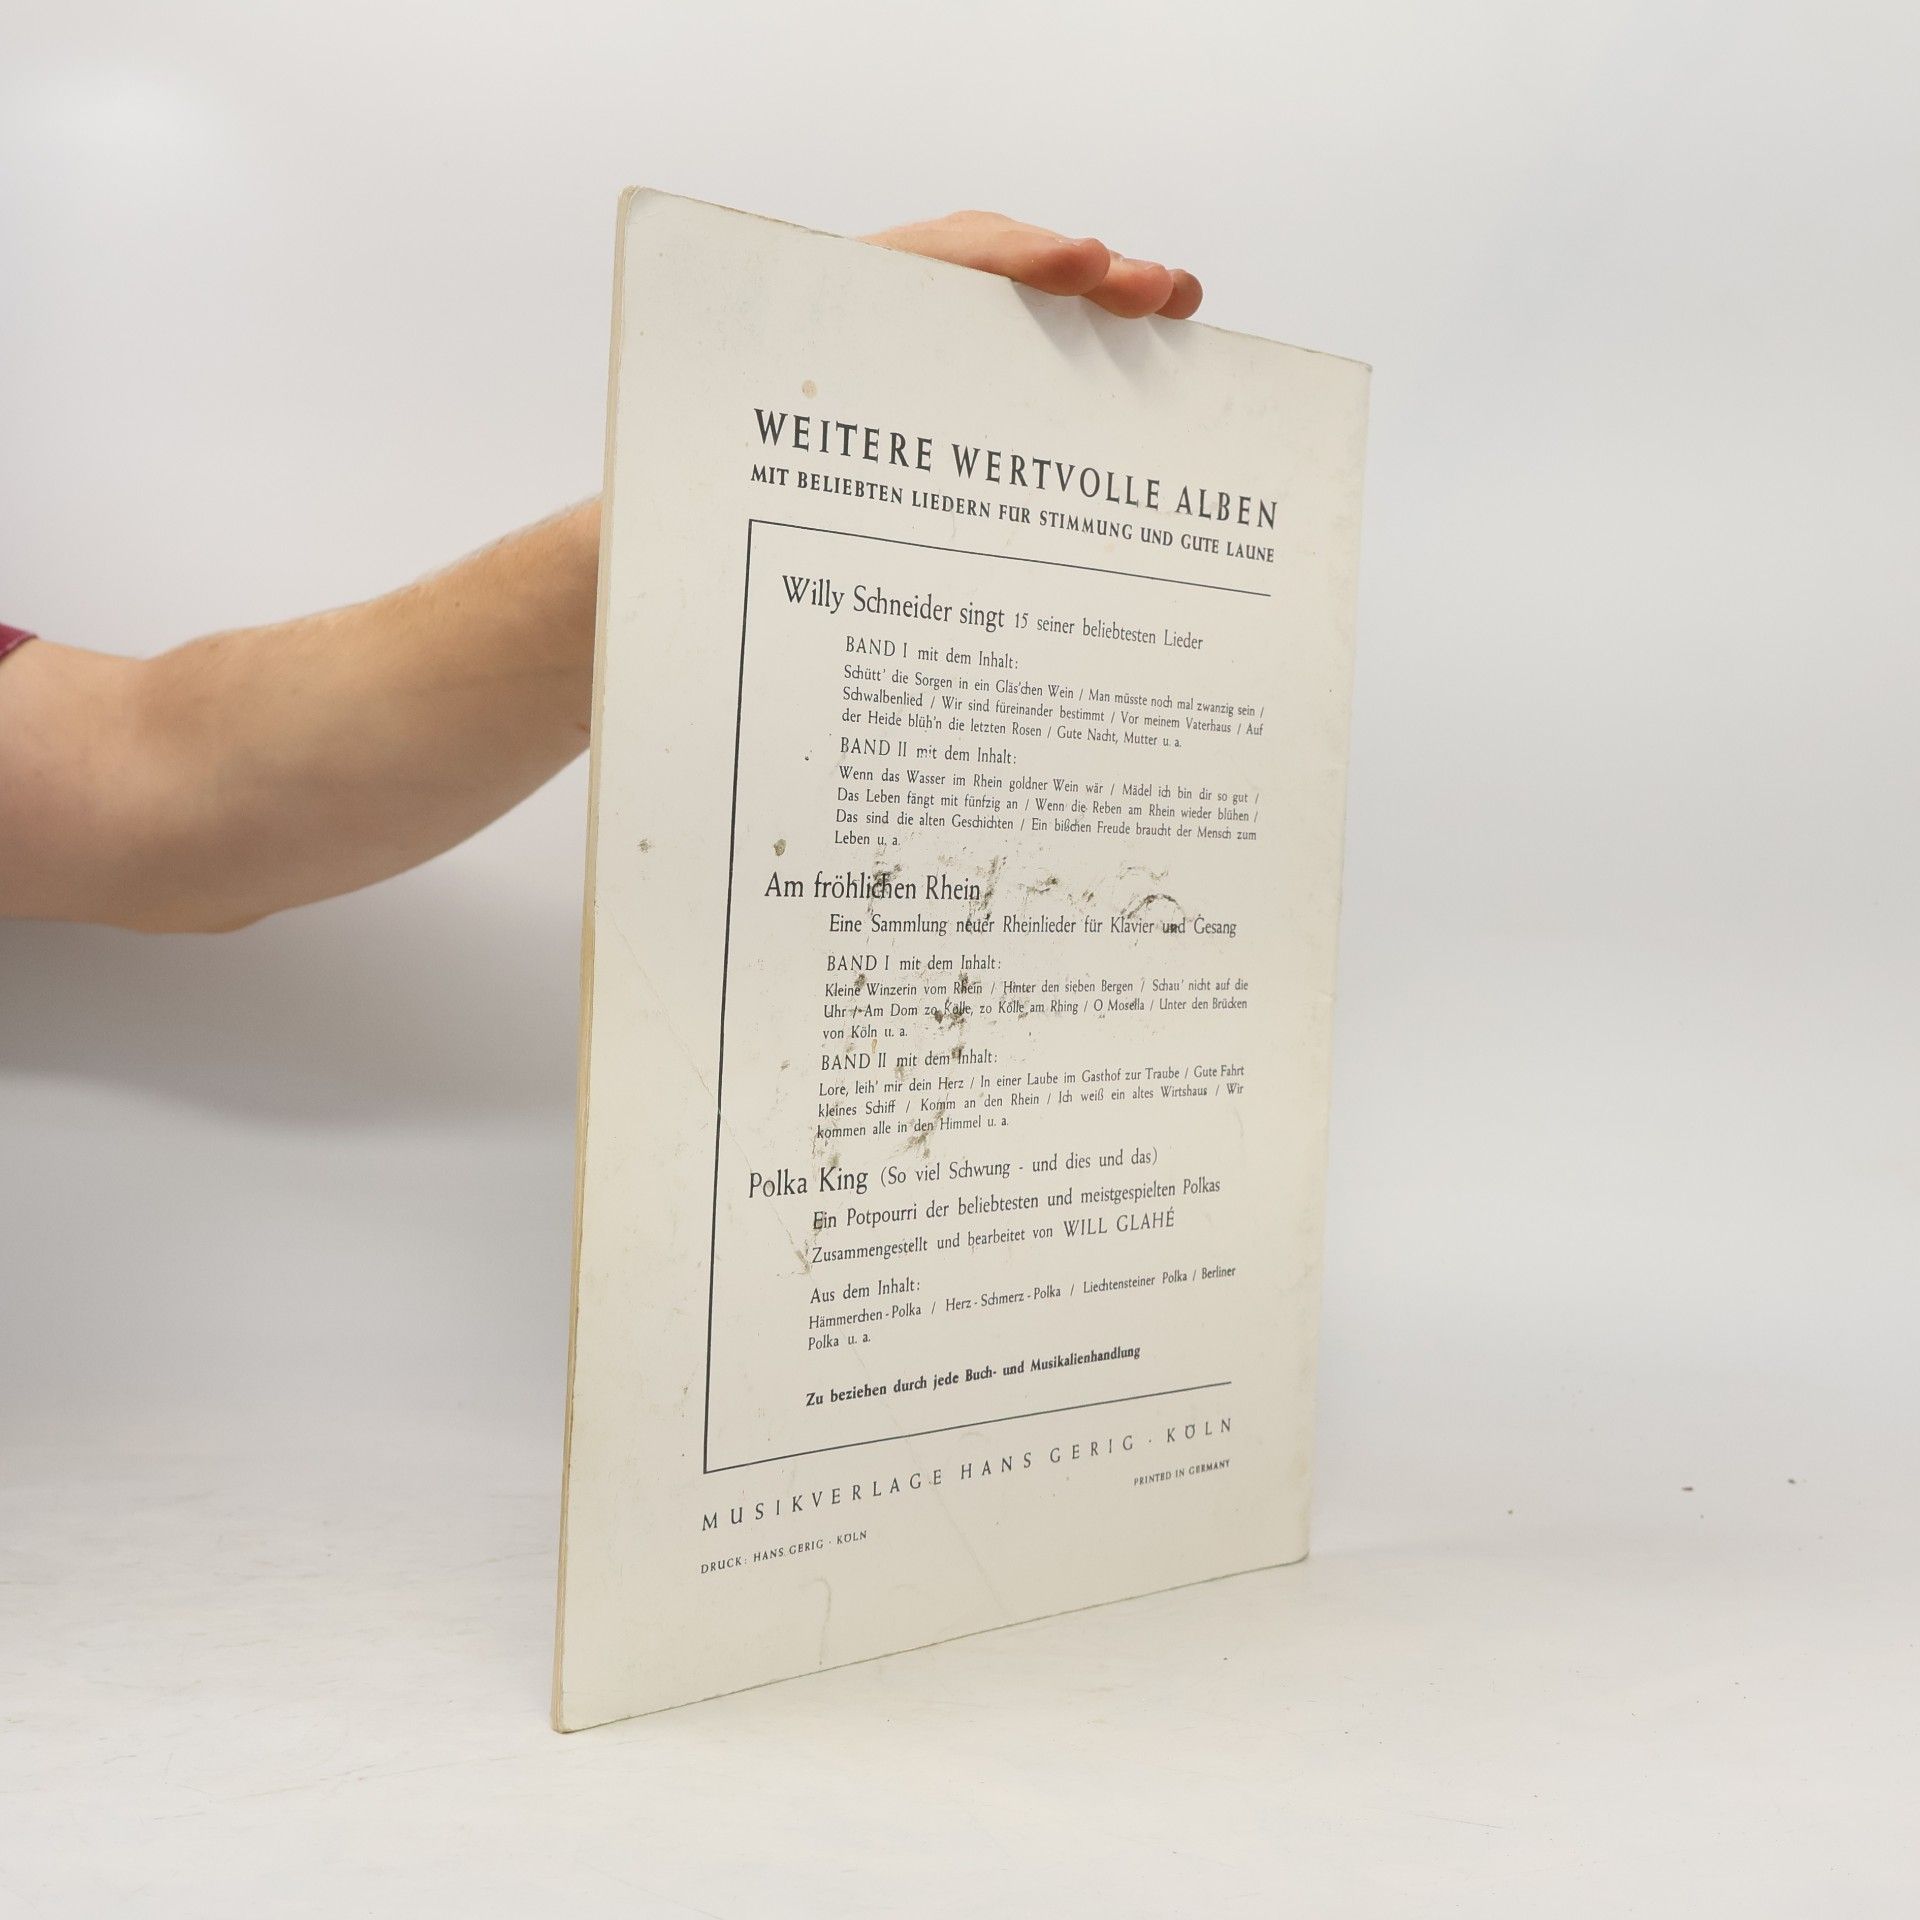 WEITERE WERTVOLLE ALBEN
MIT BELIEBTEN LIEDERN FÜR STIMMUNG UND GUTE LAUNE
Willy Schneider singt 15 seiner beliebtesten Lieder
BAND I mit dem Inhalt:
Schütt' die Sorgen in ein Gläs'chen Wein / Man müsste noch mal zwanzig sein /
Schwalbenlied / Wir sind füreinander bestimmt / Vor meinem Vaterhaus / Auf
der Heide blüh'n die letzten Rosen / Gute Nacht, Mutter u. a.
BAND II mit dem Inhalt:
Wenn das Wasser im Rhein goldner Wein wär / Mädel ich bin dir so gut /
Das Leben fängt mit fünfzig an / Wenn die Reben am Rhein wieder blühen /
Das sind die alten Geschichten / Ein bißchen Freude braucht der Mensch zum
Leben u. a.
Am fröhlichen Rhein
Eine Sammlung neuer Rheinlieder für Klavier und Gesang
BAND I mit dem Inhalt:
Kleine Winzerin vom Rhein / Hinter den sieben Bergen / Schau' nicht auf die
Uhr / Am Dom zo Kölle, zo Kölle am Rhing / O Mosella / Unter den Brücken
von Köln u. a.
BAND II mit dem Inhalt:
Lore, leih' mir dein Herz / In einer Laube im Gasthof zur Traube / Gute Fahrt
kleines Schiff / Komm an den Rhein / Ich weiß ein altes Wirtshaus / Wir
kommen alle in den Himmel u. a.
Polka King (So viel Schwung - und dies und das)
Ein Potpourri der beliebtesten und meistgespielten Polkas
Zusammengestellt und bearbeitet von WILL GLAHÉ
Aus dem Inhalt:
Hämmerchen-Polka / Herz-Schmerz-Polka / Liechtensteiner Polka / Berliner
Polka u. a.
Zu beziehen durch jede Buch- und Musikalienhandlung
MUSIKVERLAGE HANS GERIG · KÖLN
PRINTED IN GERMANY
DRUCK: HANS GERIG · KÖLN